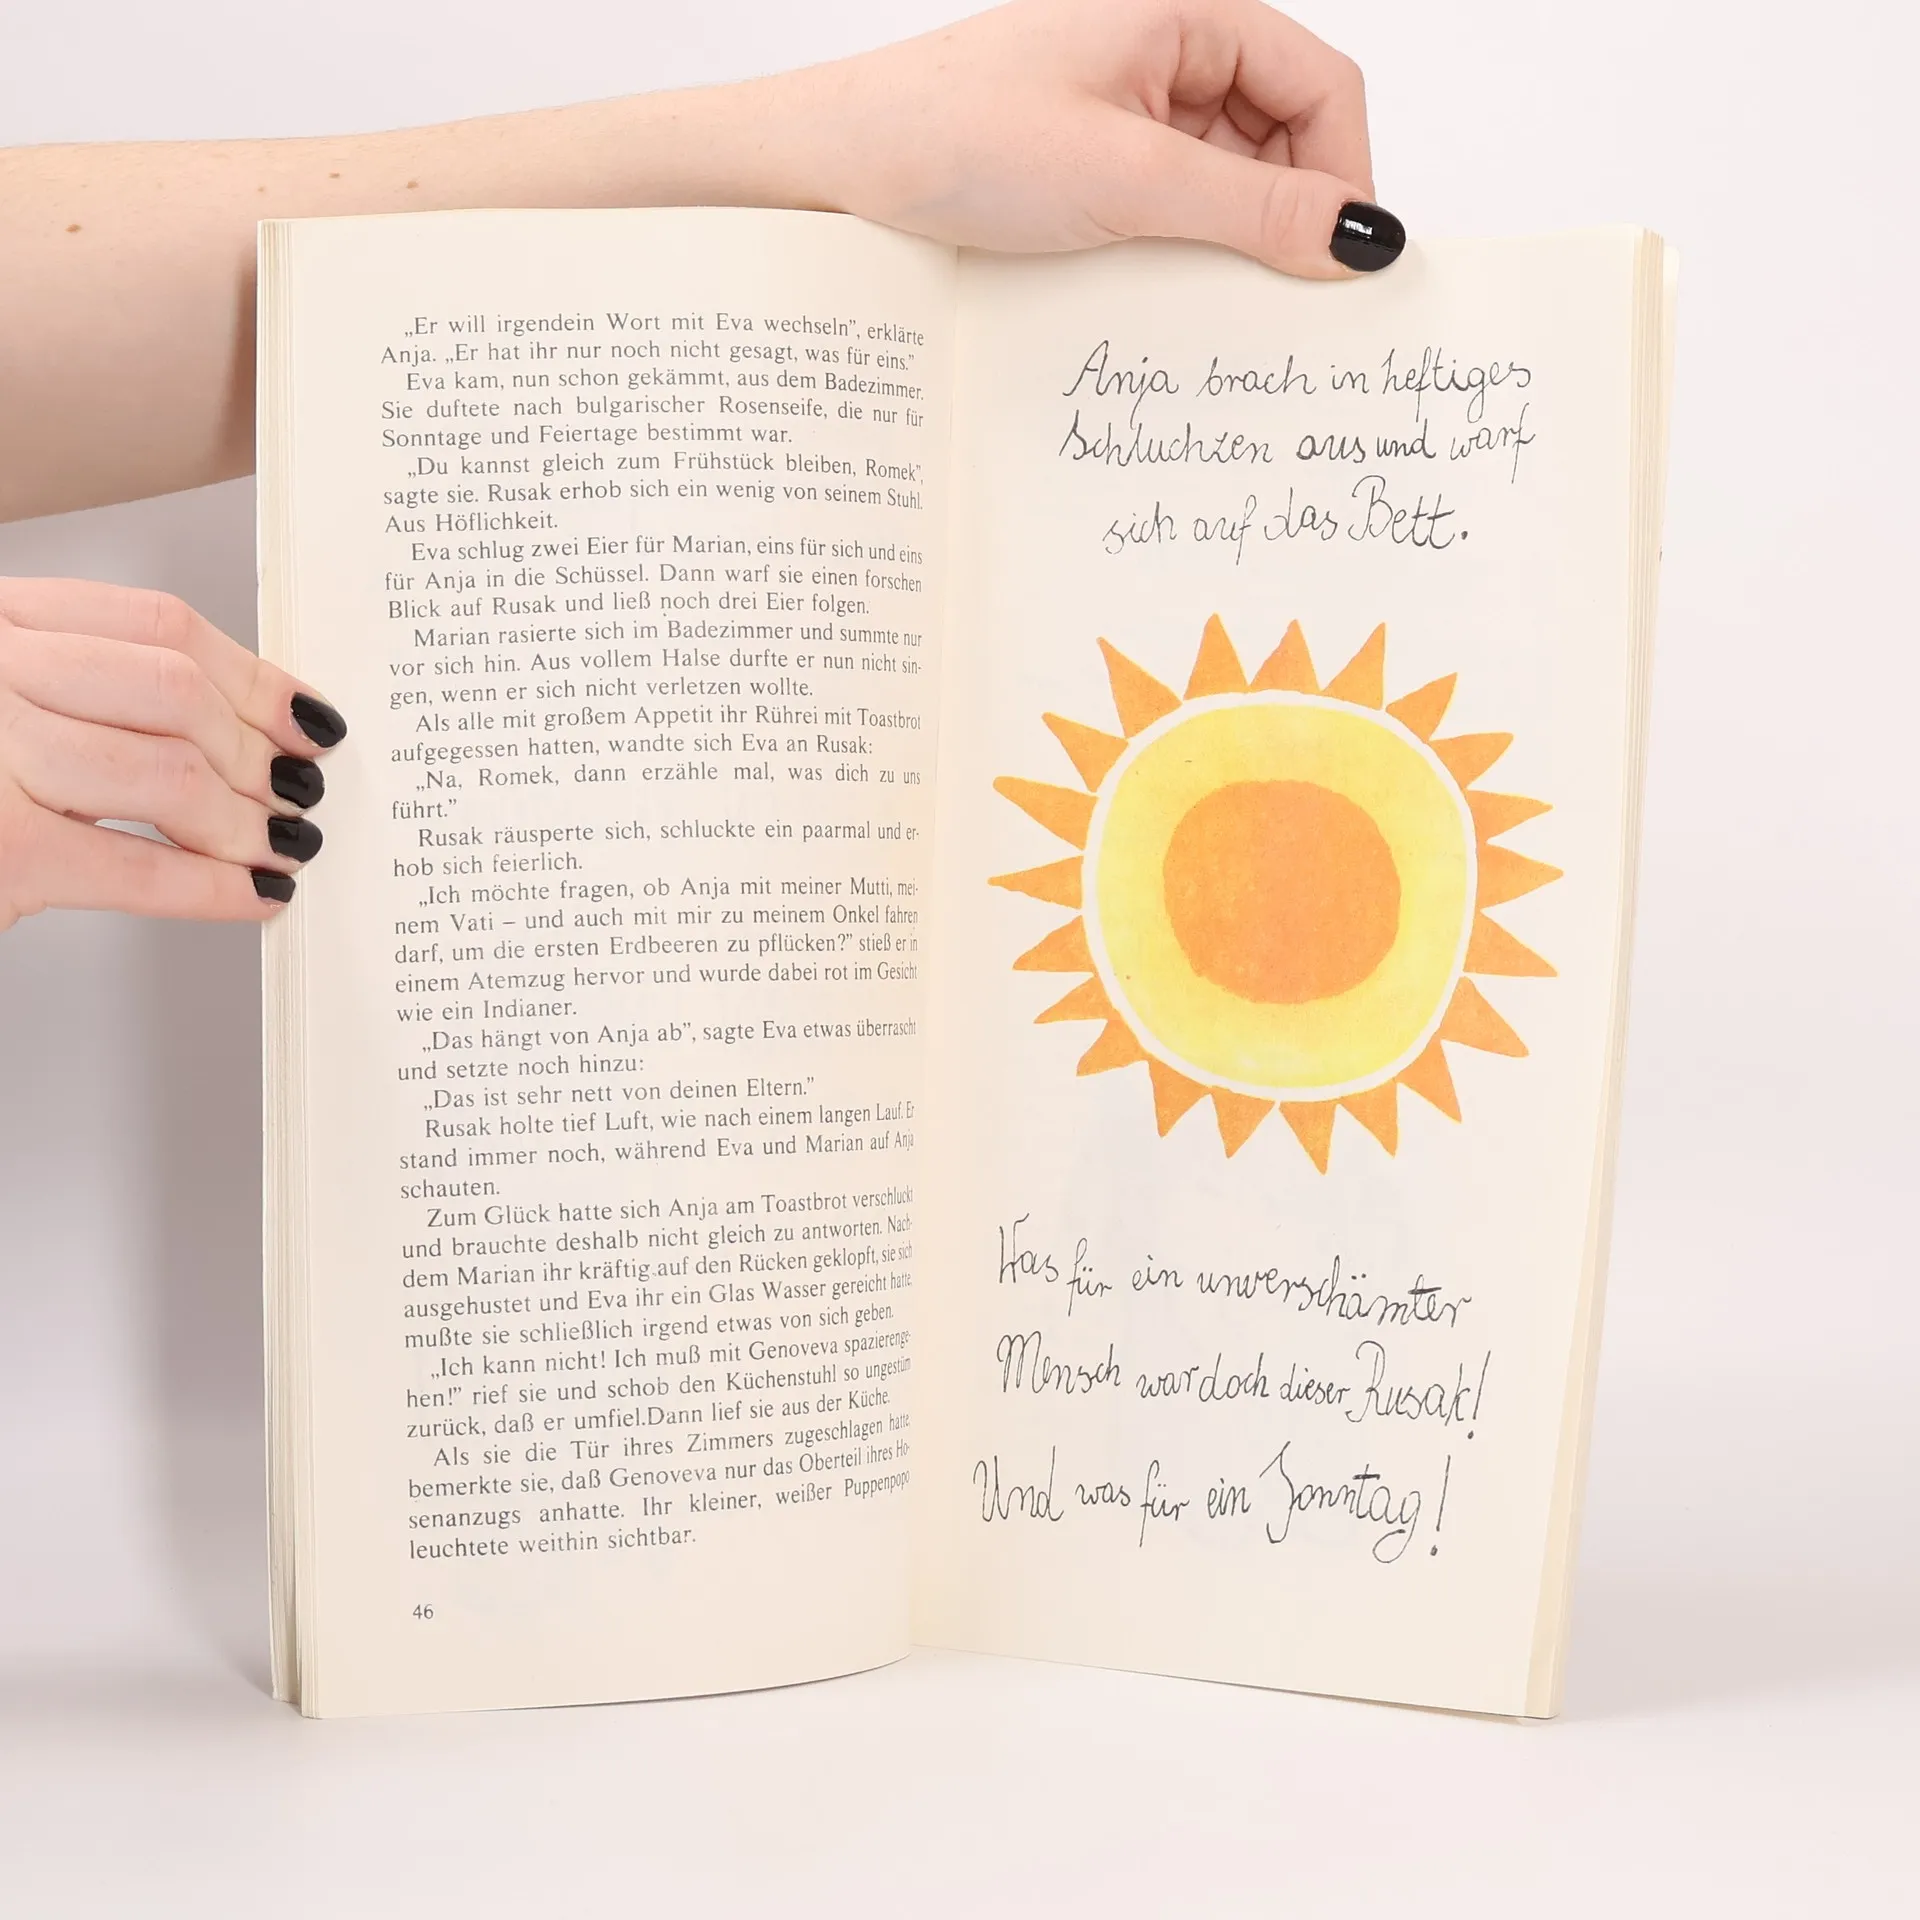 „Er will irgendein Wort mit Eva wechseln”, erklärte
Anja. „Er hat ihr nur noch nicht gesagt, was für eins.”
Eva kam, nun schon gekämmt, aus dem Badezimmer.
Sie duftete nach bulgarischer Rosenseife, die nur für
Sonntage und Feiertage bestimmt war.
„Du kannst gleich zum Frühstück bleiben, Romek”,
sagte sie. Rusak erhob sich ein wenig von seinem Stuhl.
Aus Höflichkeit.
Eva schlug zwei Eier für Marian, eins für sich und eins
für Anja in die Schüssel. Dann warf sie einen forschen
Blick auf Rusak und ließ noch drei Eier folgen.
Marian rasierte sich im Badezimmer und summte nur
vor sich hin. Aus vollem Halse durfte er nun nicht sin-
gen, wenn er sich nicht verletzen wollte.
Als alle mit großem Appetit ihr Rührei mit Toastbrot
aufgegessen hatten, wandte sich Eva an Rusak:
„Na, Romek, dann erzähle mal, was dich zu uns
führt.”
Rusak räusperte sich, schluckte ein paarmal und er-
hob sich feierlich.
„Ich möchte fragen, ob Anja mit meiner Mutti, mei-
nem Vati – und auch mit mir zu meinem Onkel fahren
darf, um die ersten Erdbeeren zu pflücken?” stieß er in
einem Atemzug hervor und wurde dabei rot im Gesicht
wie ein Indianer.
„Das hängt von Anja ab”, sagte Eva etwas überrascht
und setzte noch hinzu:
„Das ist sehr nett von deinen Eltern.”
Rusak holte tief Luft, wie nach einem langen Lauf. Er
stand immer noch, während Eva und Marian auf Anja
schauten.
Zum Glück hatte sich Anja am Toastbrot verschluckt
und brauchte deshalb nicht gleich zu antworten. Nach-
dem Marian ihr kräftig auf den Rücken geklopft, sie sich
ausgehustet und Eva ihr ein Glas Wasser gereicht hatte,
mußte sie schließlich irgend etwas von sich geben.
„Ich kann nicht! Ich muß mit Genoveva spazierenge-
hen!” rief sie und schob den Küchenstuhl so ungestüm
zurück, daß er umfiel.Dann lief sie aus der Küche.
Als sie die Tür ihres Zimmers zugeschlagen hatte,
bemerkte sie, daß Genoveva nur das Oberteil ihres Ho-
senanzugs anhatte. Ihr kleiner, weißer Puppenpopo
leuchtete weithin sichtbar.
46
Anja brach in heftiges
Schluchzen aus und warf
sich auf das Bett.
Was für ein unverschämter
Mensch war doch dieser Rusak!
Und was für ein Sonntag!